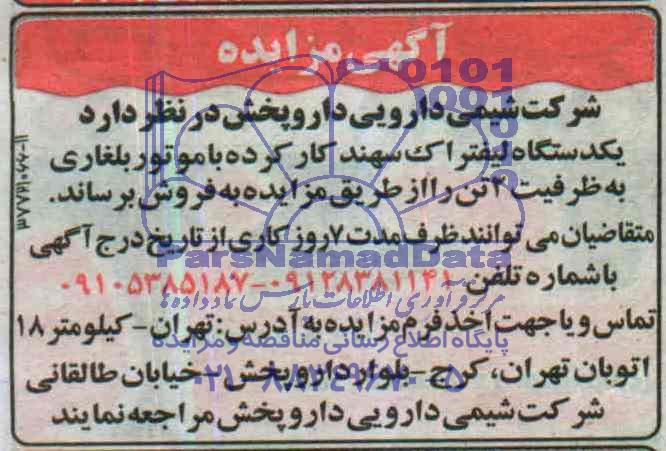 آگهی مزایده
شرکت شیمی دارویی داروپخش در نظر دارد
یکدستگاه لیفتراک سهند کارکرده با موتور بلغاری
به ظرفیت ۳ تن را از طریق مزایده به فروش برساند.
متقاضیان می توانند ظرف مدت ۷ روز کاری از تاریخ درج آگهی
با شماره تلفن ۰۹۱۲۸۳۸۱۱۴۱-۰۹۱۰۵۳۸۵۱۸۷
تماس و یا جهت اخذ فرم مزایده به آدرس: تهران- کیلومتر ۱۸
اتوبان تهران، کرج-بلوار داروپخش- خیابان طالقانی
شرکت شیمی دارویی داروپخش مراجعه نمایند
ParsNamadData
پایگاه اطلاع رسانی مناقصه و مزایده